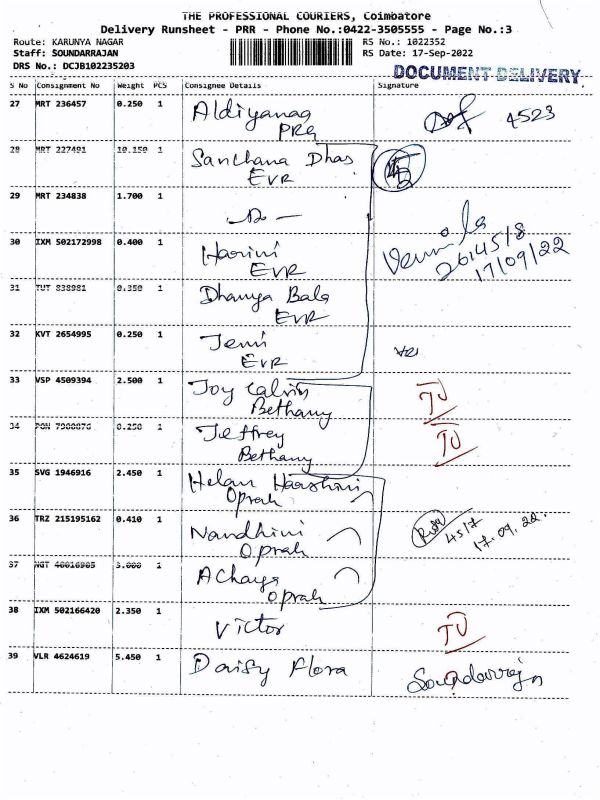 THE PROFESSIONAL COURIERS, Coimbatore
Delivery Runsheet - PRR - Phone No.:0422-3505555 - Page No.:3
Route: KARUNYA NAGAR RS No.: 1022352
Staff: SOUNDARRAJAN RS Date: 17-Sep-2022
DRS No.: DCJB102235203 DOCUMENT DELIVERY
S No Consignment No Weight PCS Consignee Details Signature
27 MRT 236457 0.250 1 Aldiyanag 4523
PRG
28 MRT 227491 10.150 1 Sanchana Dhas
EVR
29 MRT 234838 1.700 1 — Do —
30 IXM 502172998 0.400 1 Harini
EVR
264518
17/09/22
31 TUT 838981 0.350 1 Dhanya Bala
EVR
32 KVT 2654995 0.250 1 Jemi
EVR
33 VSP 4509394 2.500 1 Joy Calvin TJ
Bethany
34 PON 0.250 1 Jeffrey TJ
Bethany
35 SVG 1946916 2.450 1 Helan Harshini
Oprah
36 TRZ 215195162 0.410 1 Nandhini 4517
Oprah 17.09.22
37 1 Acharya
Oprah
38 IXM 502166420 2.350 1 Victor TJ
39 VLR 4624619 5.450 1 Daisy Flora Soundarrajn